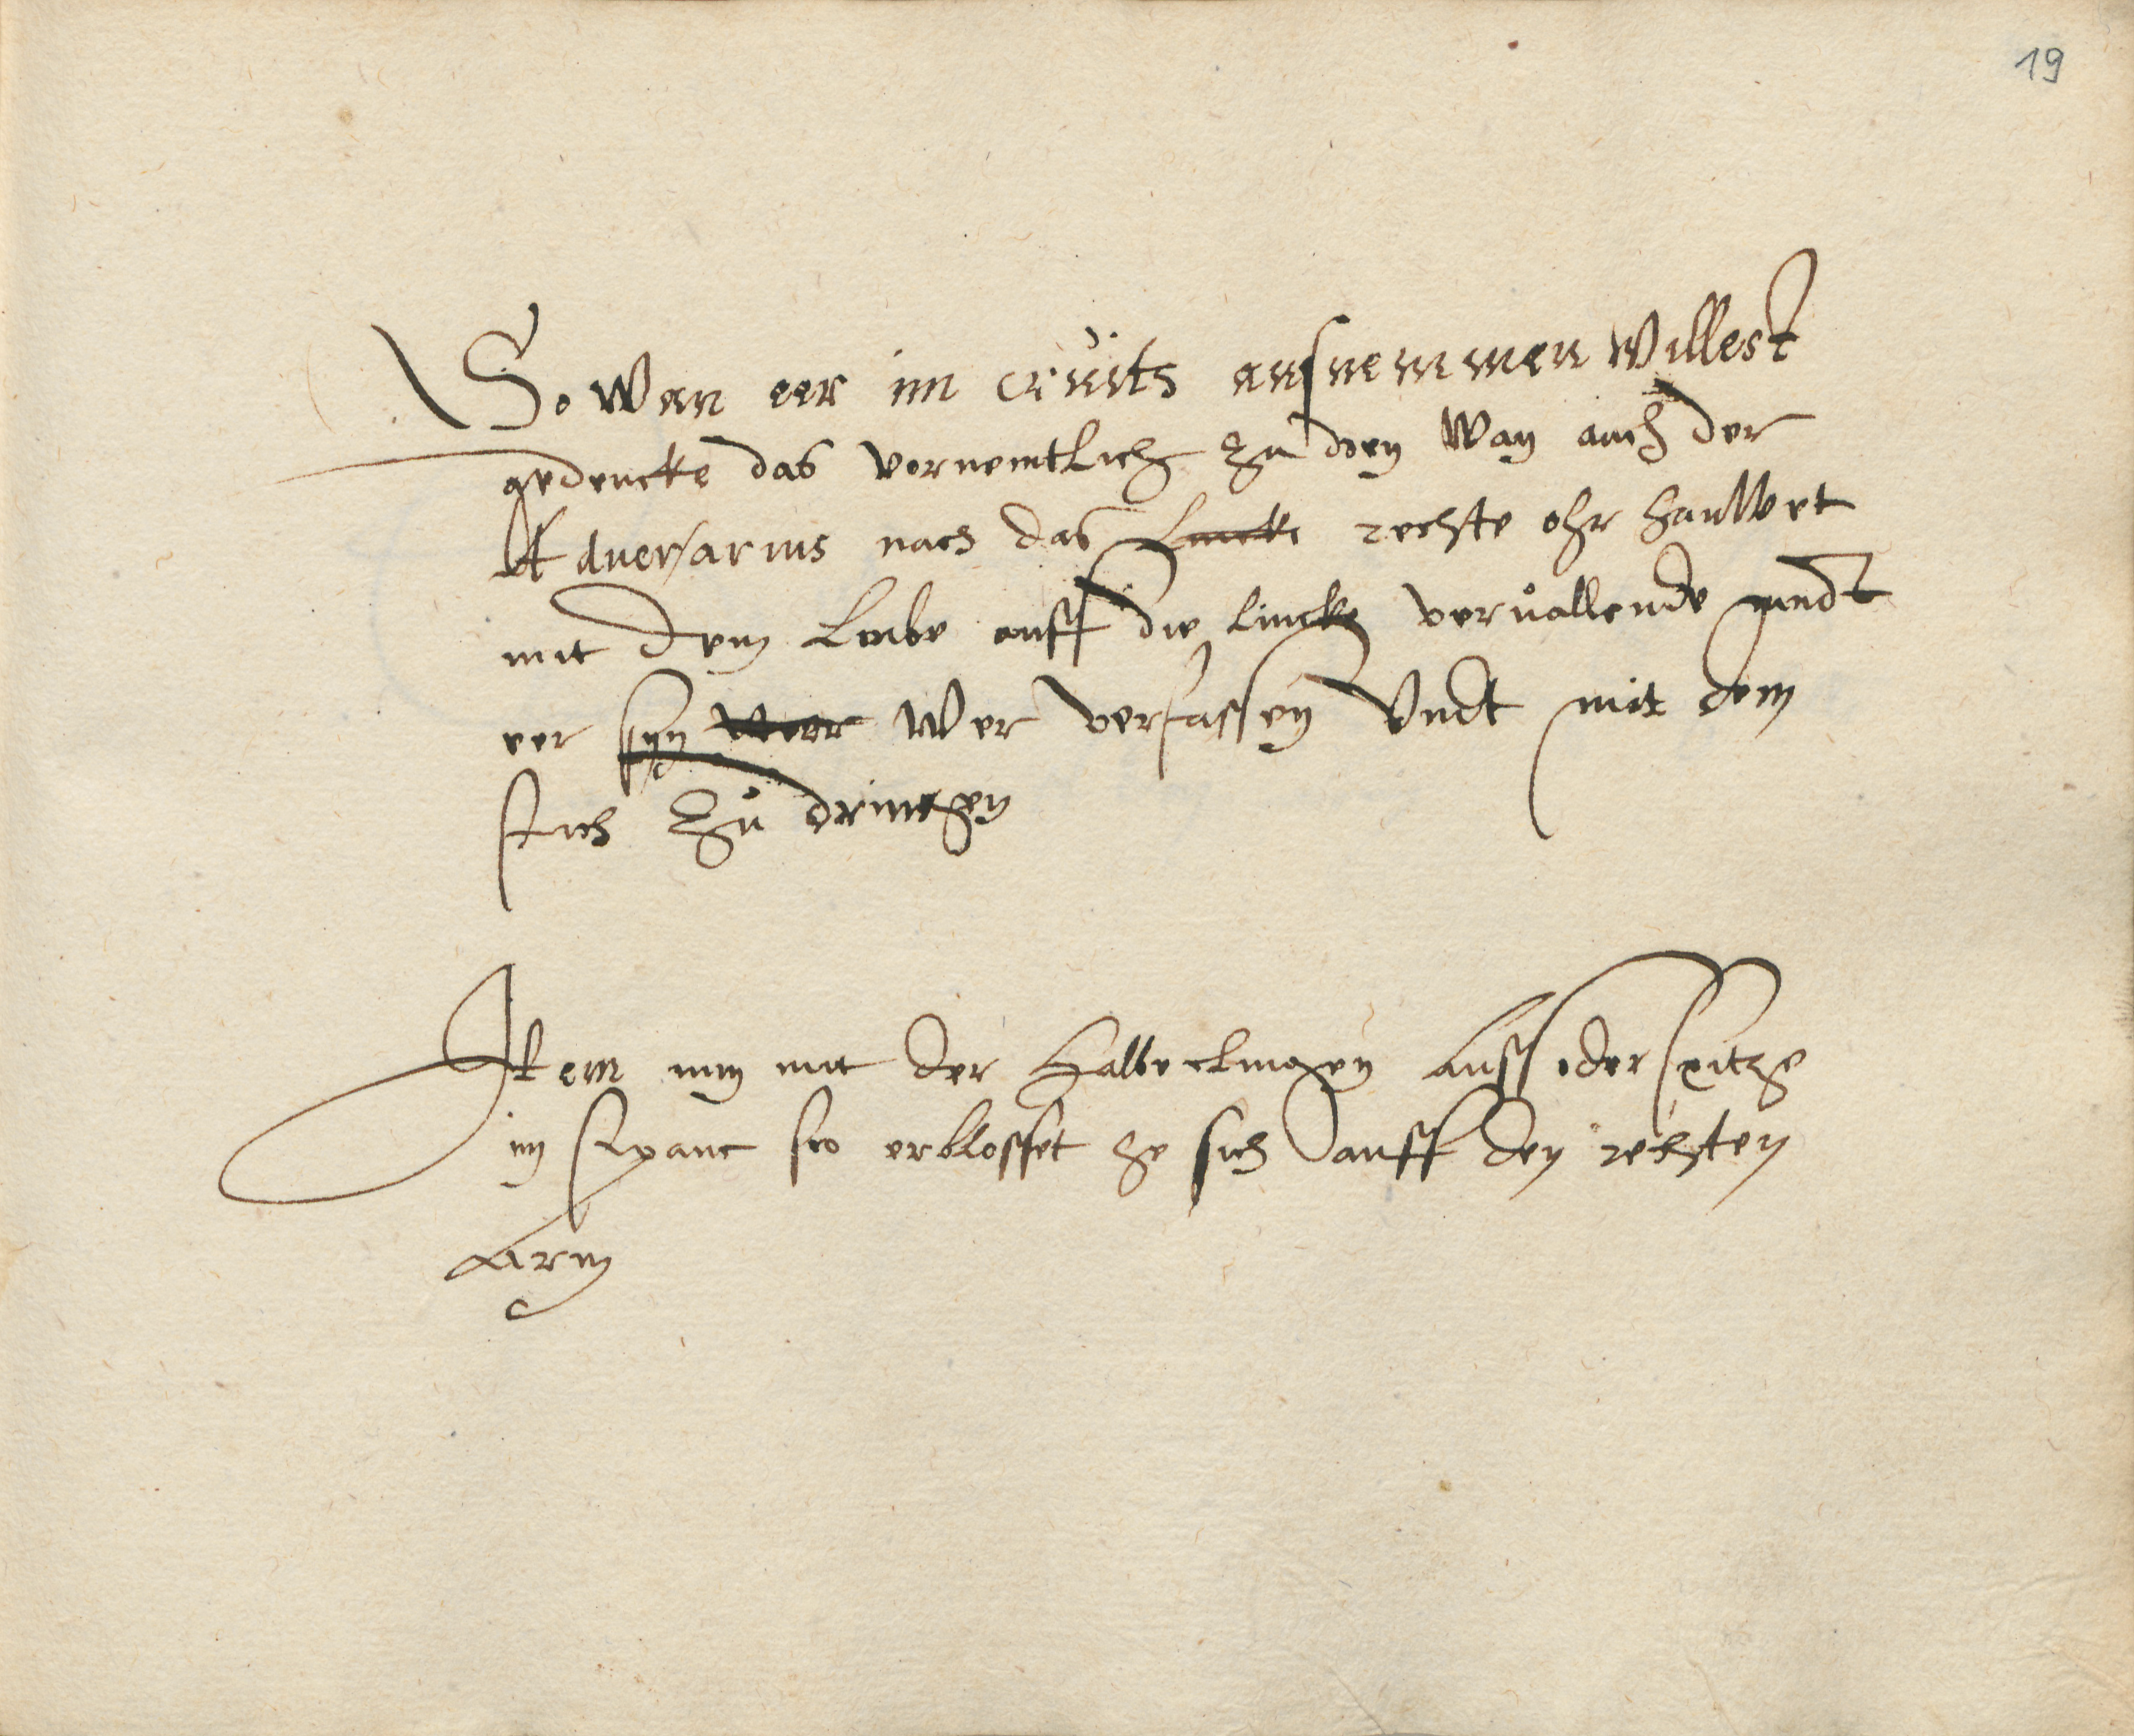 19
So wan eer im crüits ausnemmen willest
gedencke das vornemtlich zu doen wan auch der
Aduersarius nach das lincke rechte ohr hauwet
mit dem Leibe auff die lincke veruallende undt
eer syn weer wer verfassen Undt mit dem
stich zů dringen
Item nun mit der halbe klingen auff der spitze
in so erblosset he sich auff den rechten
Arm